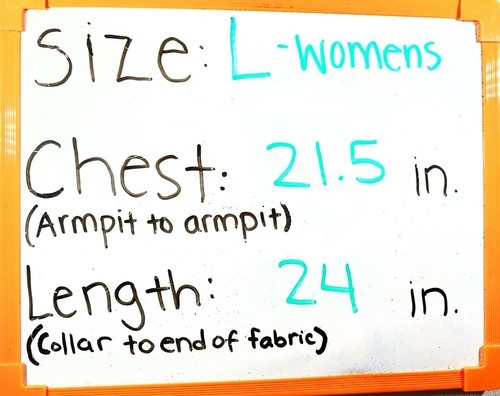 Size: L - Womens
Chest: 21.5 in.
(Armpit to armpit)
Length: 24 in.
(Collar to end of fabric)